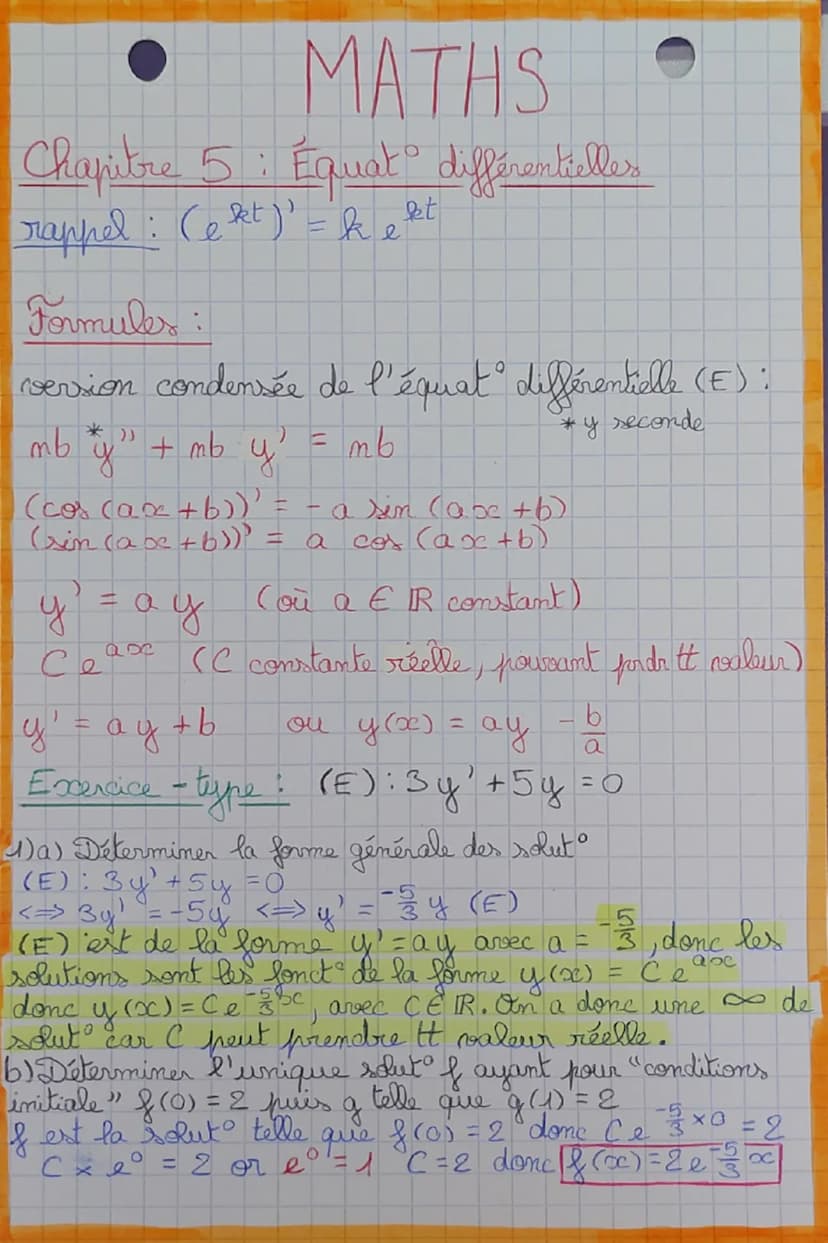 MATHS
Chapitre 5 : Équat° différentielles
rappel : (e^kt)' = k e^kt
Formules :
version condensée de l'équat° différentielle (E) :
* y seconde
mb *y'' + mb y' = mb
(cos (ax + b))' = - a sin (ax + b)
(sin (ax + b))' = a cos (ax + b)
y' = a y (où a ∈ ℝ constant)
C e^ax (C constante réelle, pouvant prdr tt valeur)
y' = ay + b ou y(x) = ay - b/a
Exercice - type : (E) : 3y' + 5y = 0
1)a) Déterminer la forme générale des solut°
(E) : 3y' + 5y = 0
<=> 3y' = -5y <=> y' = -5/3 y (E)
(E) est de la forme y' = ay avec a = -5/3, donc les
solutions sont les fonct° de la forme y(x) = C e^ax
donc y(x) = C e^-5/3x, avec C ∈ ℝ. On a donc une ∞ de
solut° car C peut prendre tt valeur réelle.
b) Déterminer l'unique solut° f ayant pour "conditions
initiale" f(0) = 2 puis g telle que g(1) = 2
f est la solut° telle que f(0) = 2 donc C e^-5/3 × 0 = 2
C × e^0 = 2 or e^0 = 1 C = 2 donc f(x) = 2e^-5/3 x